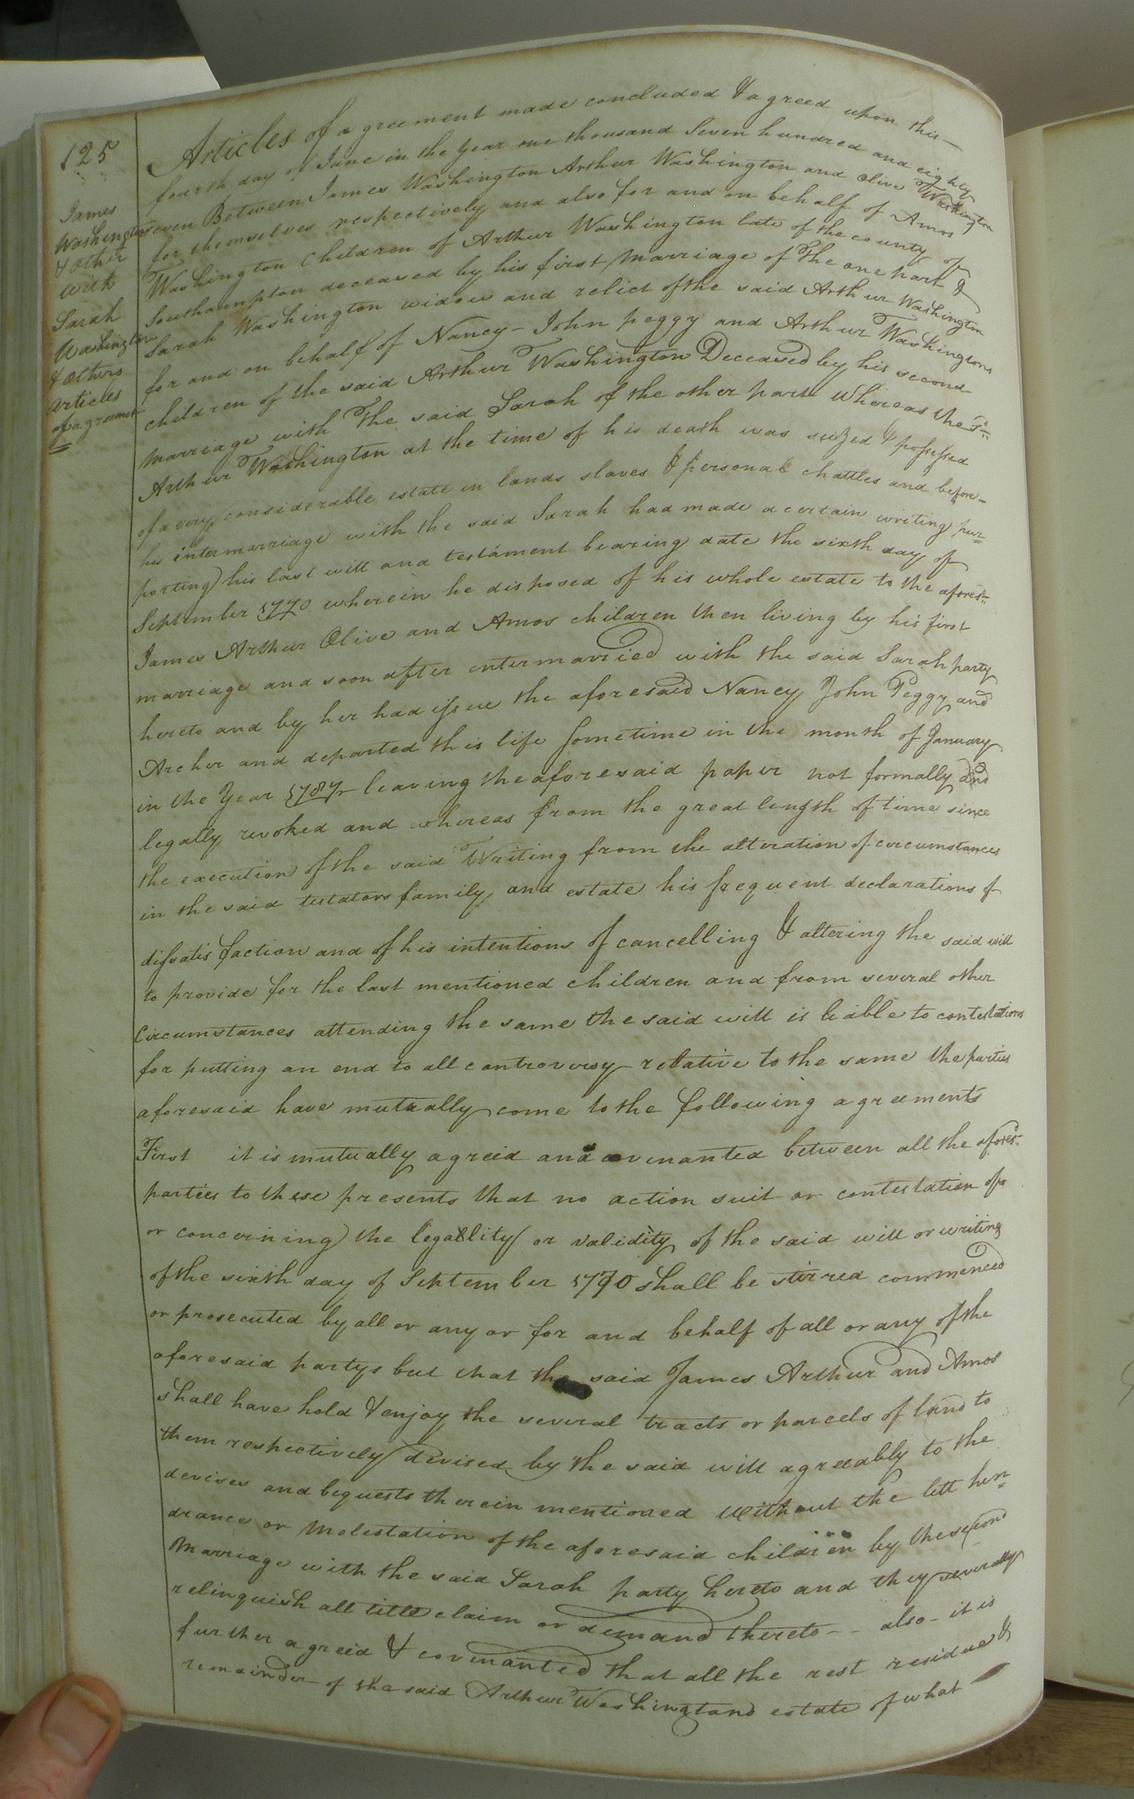 125
James
Washington
& other
with
Sarah
Washington
& others
articles
of agreement
Articles of agreement made concluded & agreed upon this
fourth day of June in the Year one thousand Seven hundred and eighty
seven Between James Washington Arthur Washington and Olive Washington
for themselves respectively and also for and on behalf of Amos
Washington Children of Arthur Washington late of the county of
Southampton deceased by his first marriage of the one part &
Sarah Washington widow and relict of the said Arthur Washington
for and on behalf of Nancy John peggy and Arthur Washingtons
children of the said Arthur Washington Deceased by his second
marriage with the said Sarah of the other part Whereas the sd.
Arthur Washington at the time of his death was seized & possessed
of a very considerable estate in lands slaves & personal chattles and before
his intermarriage with the said Sarah had made a certain writing pur=
porting his last will and testament bearing date the sixth day of
September 1770 wherein he disposed of his whole estate to the afores=
James Arthur Olive and Amos children then living by his first
marriage and soon after intermarried with the said Sarah party
hereto and by her had issue the aforesaid Nancy John Peggy and
Archer and departed this life sometime in the month of January
in the Year 1787 leaving the aforesaid paper not formally and
legally revoked and whereas from the great length of time since
the execution of the said Writing from the alteration of circumstances
in the said testators family, and estate his frequent declarations of
dissatisfaction and of his intentions of cancelling & altering the said will
to provide for the last mentioned children and from several other
Circumstances attending the same the said will is liable to contestations
for putting an end to all controversy relative to the same the parties
aforesaid have mutually come to the following agreements
First it is mutually agreed and covenanted between all the afores=
parties to these presents that no action suit or contestation of
or concerning the legallity or validity of the said will or writing
of the sixth day of September 1770 shall be stirred commenced
or prosecuted by all or any or for and behalf of all or any of the
aforesaid partys but that the said James Arthur and Amos
shall have hold & enjoy the several tracts or parcels of land to
them respectively devised by the said will agreeably to the
devises and bequests therein mentioned without the lett hin=
drance or Molestation of the aforesaid children by the second
Marriage with the said Sarah party hereto and they severally
relinquish all title claim or demand thereto -- also - it is
further agreed & covenanted that all the rest residue &
remainder of the said Arthur Washingtons estate of what